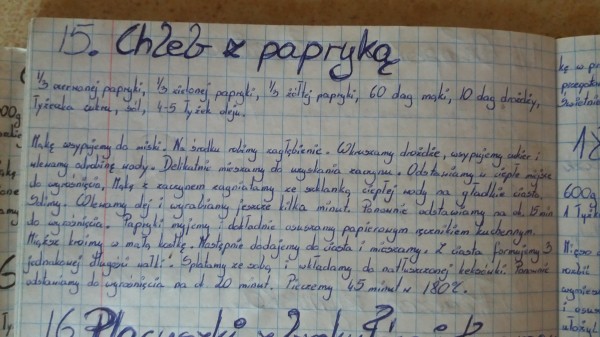 15. Chleb z papryką
1/3 czerwonej papryki, 1/3 zielonej papryki, 1/3 żółtej papryki, 60 dag mąki, 10 dag drożdży,
łyżeczka cukru, sól, 4-5 łyżek oleju.
Mąkę wsypujemy do miski. Na środku robimy zagłębienie. Wkruszamy drożdże, wsypujemy cukier i
wlewamy odrobinę wody. Delikatnie mieszamy do uzyskania zaczynu. Odstawiamy w ciepłe miejsce
do wyrośnięcia. Mąkę z zaczynem zagniatamy ze szklanką ciepłej wody na gładkie ciasto.
Solimy. Wlewamy olej i wyrabiamy jeszcze kilka minut. Ponownie odstawiamy na ok. 15 min
do wyrośnięcia. Papryki myjemy i dokładnie osuszamy papierowym ręcznikiem kuchennym.
Miąższ kroimy w małą kostkę. Następnie dodajemy do ciasta i mieszamy. Z ciasta formujemy 3
jednakowej długości wałki. Splatamy ze sobą i wkładamy do natłuszczonej keksówki. Ponownie
odstawiamy do wyrośnięcia na ok. 20 minut. Pieczemy 45 minut w 180°C.
16.
600g